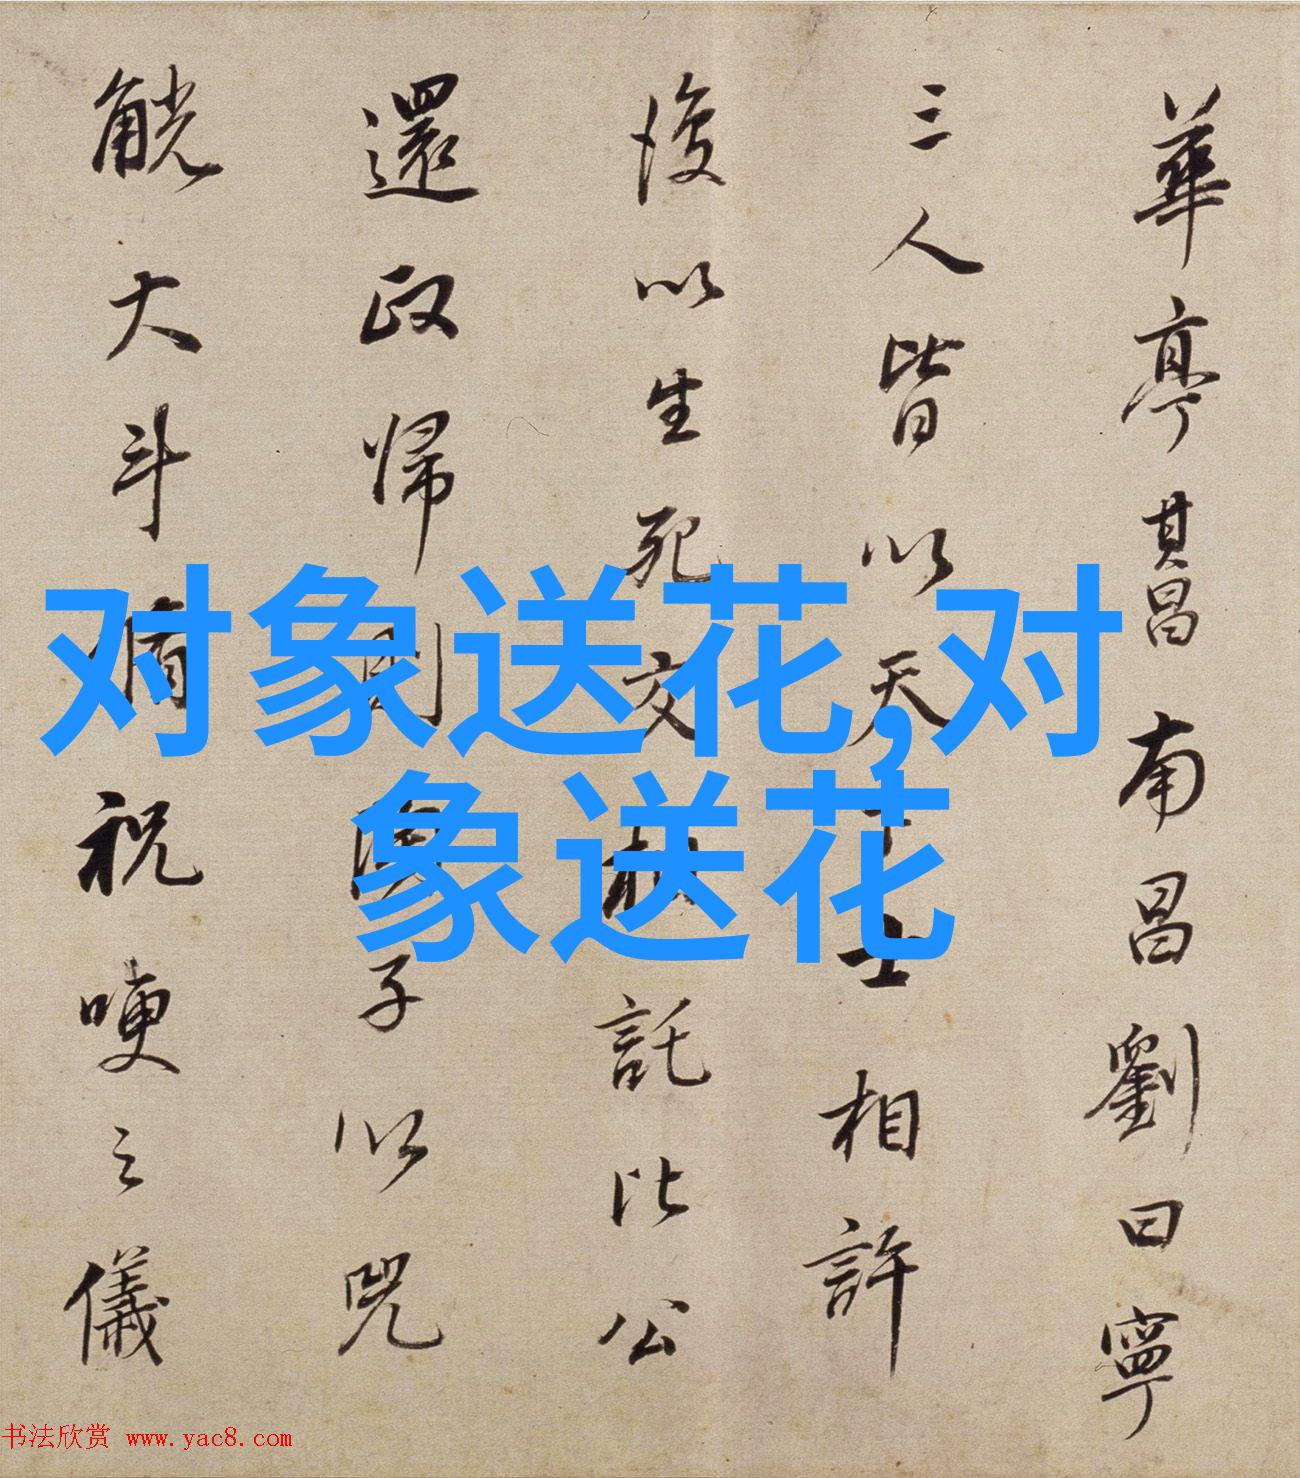 华亭其昌南昌劉曰寧
三人皆以天士相許
後以生死交相託比公
還政歸子以兕
觥大斗祝哽之儀
对象送花,对
象送花
书法欣赏 www.yac8.com